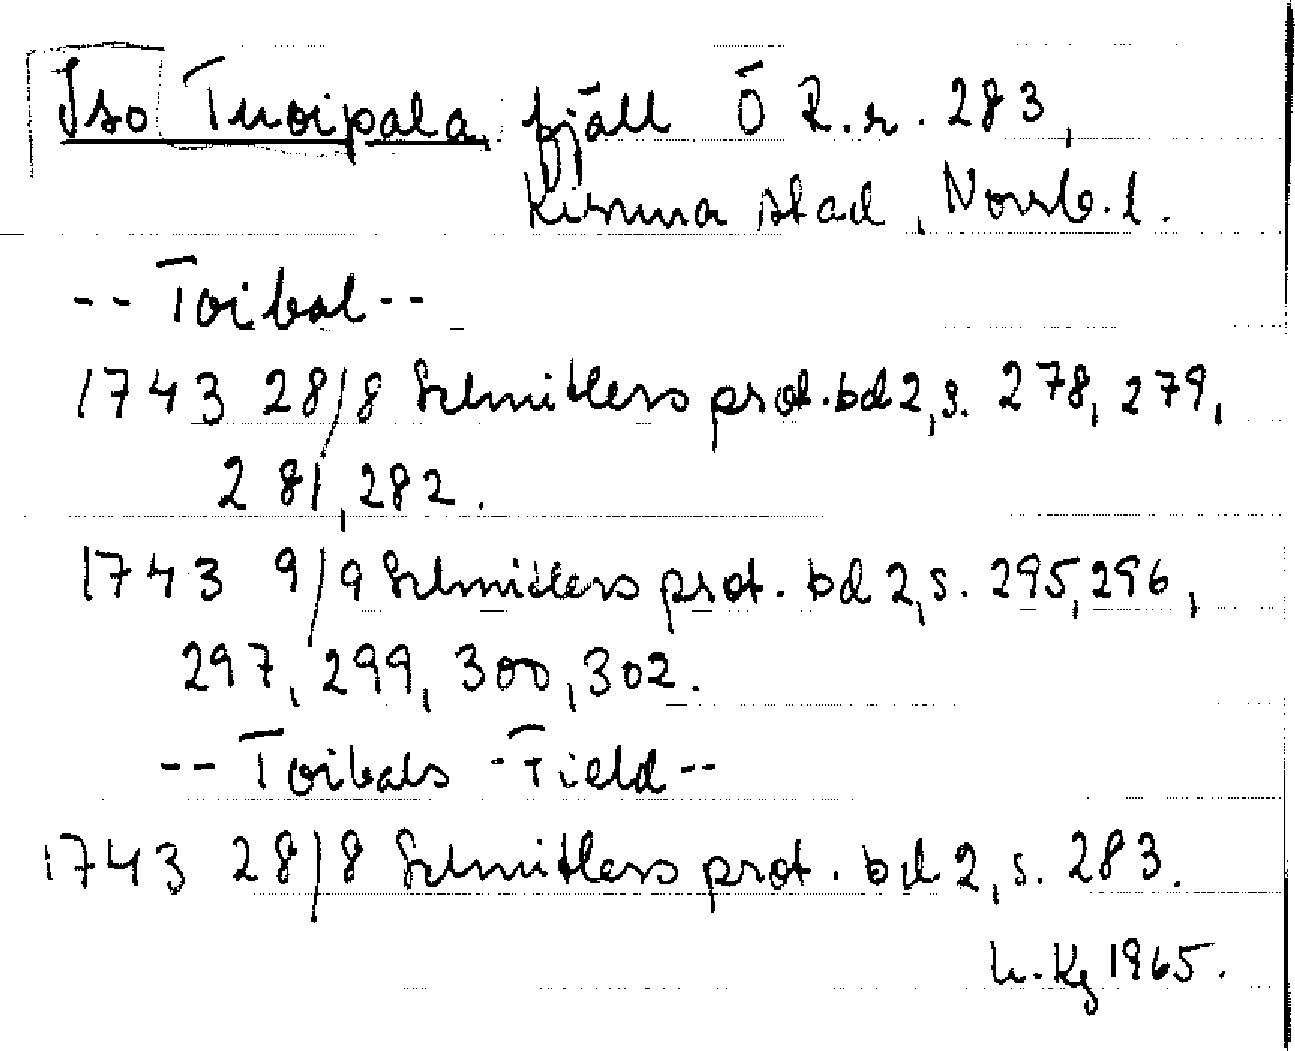 Iso Tuoipala fjäll Ö R.r. 283,
Kiruna stad, Norrb. l.
-- Toibal --
1743 28/8 Schnitlers prot. bd 2, s. 278, 279,
281, 282.
1743 9/9 Schnitlers prot. bd 2, s. 295, 296,
297, 299, 300, 302.
-- Toibals -Field --
1743 28/8 Schnitlers prot. bd 2, s. 283.
1965.